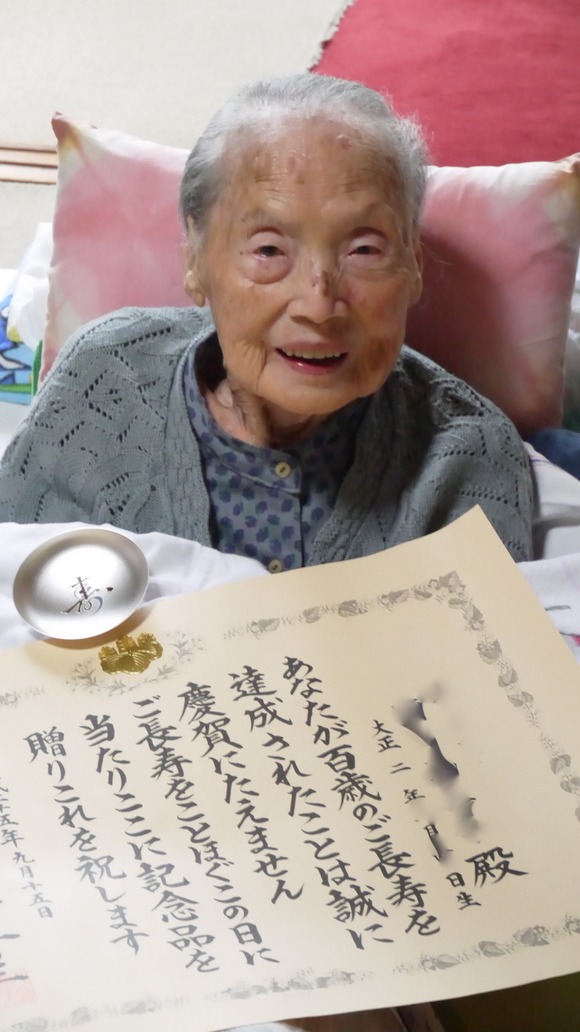 殿
大正二年 月 日生
あなたが百歳のご長寿を
達成されたことは誠に
慶賀にたえません
ご長寿をことほぐこの日に
当たりここに記念品を
贈りこれを祝します
十五年九月十五日
寿